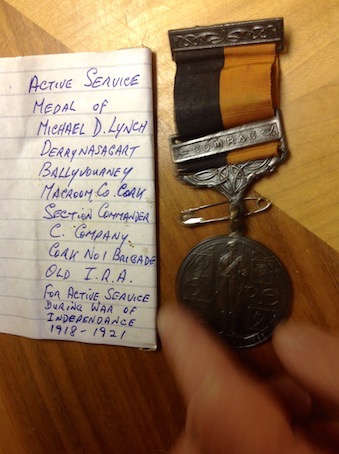 ACTIVE SERVICE
MEDAL OF
MICHAEL D. LYNCH
DERRYNASAGART
BALLYVOURNEY
MACROOM, CO. CORK
SECTION COMMANDER
C. COMPANY
CORK NO1 BRIGADE
OLD I.R.A.
FOR ACTIVE SERVICE
DURING WAR OF
INDEPENDANCE
1918-1921
COMRAC